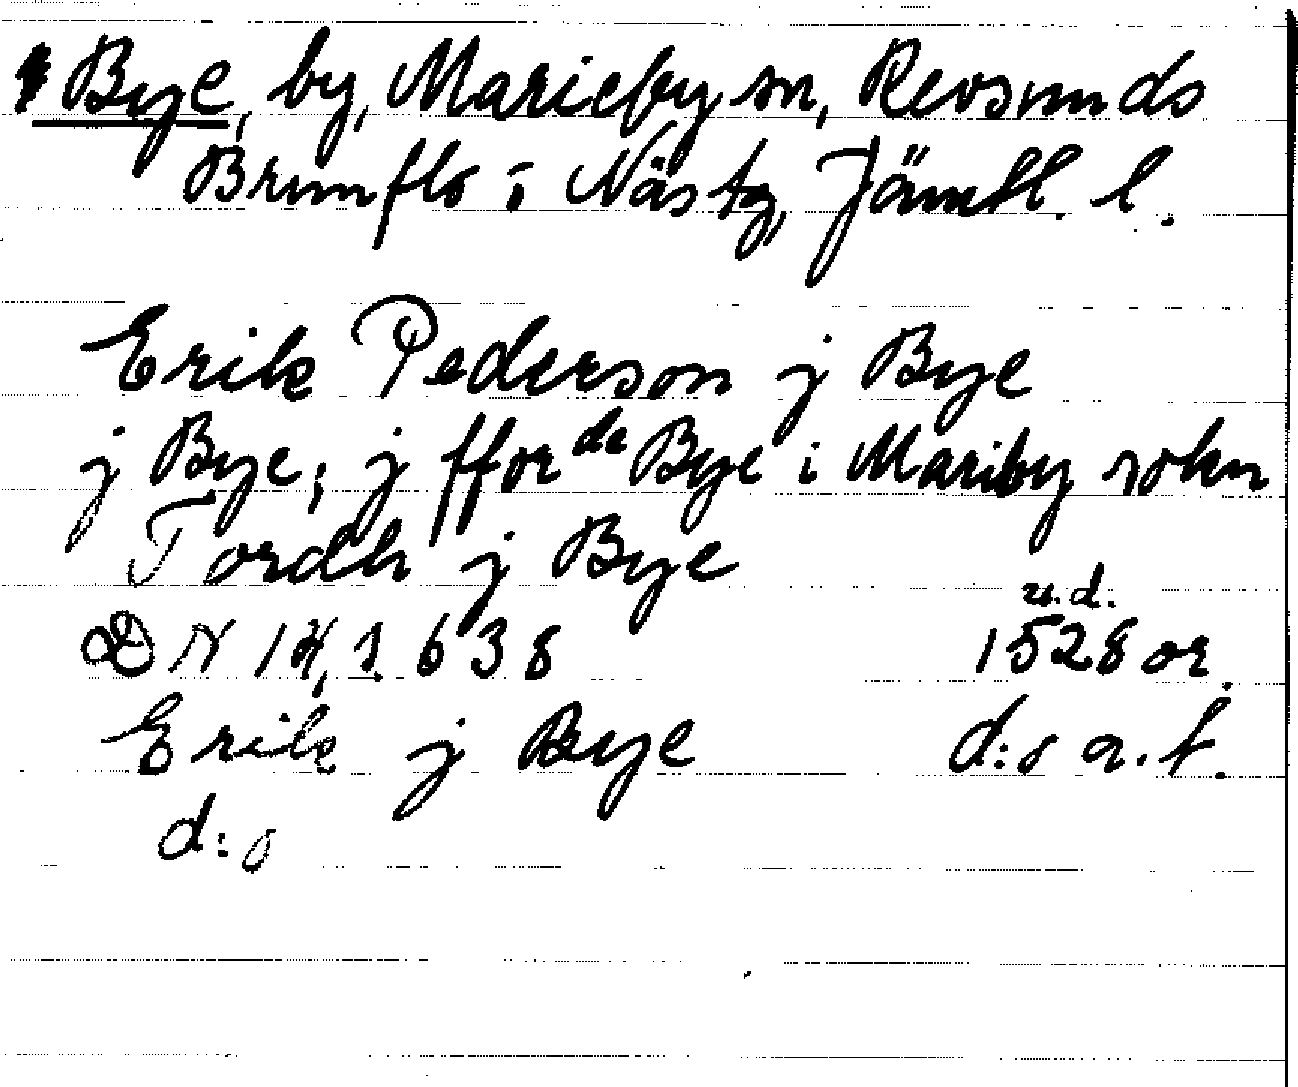 Bye, by, Marieby sn, Revsunds
Brunflo i Näs tg, Jämtl. l.
Erik Pederson j Bye
j Bye; j fforde Bye i Mariby sokn
Tordh j Bye
u.d.
DN 14, s. 638 1528 or.
Erik j Bye d:o a.f.
d:o